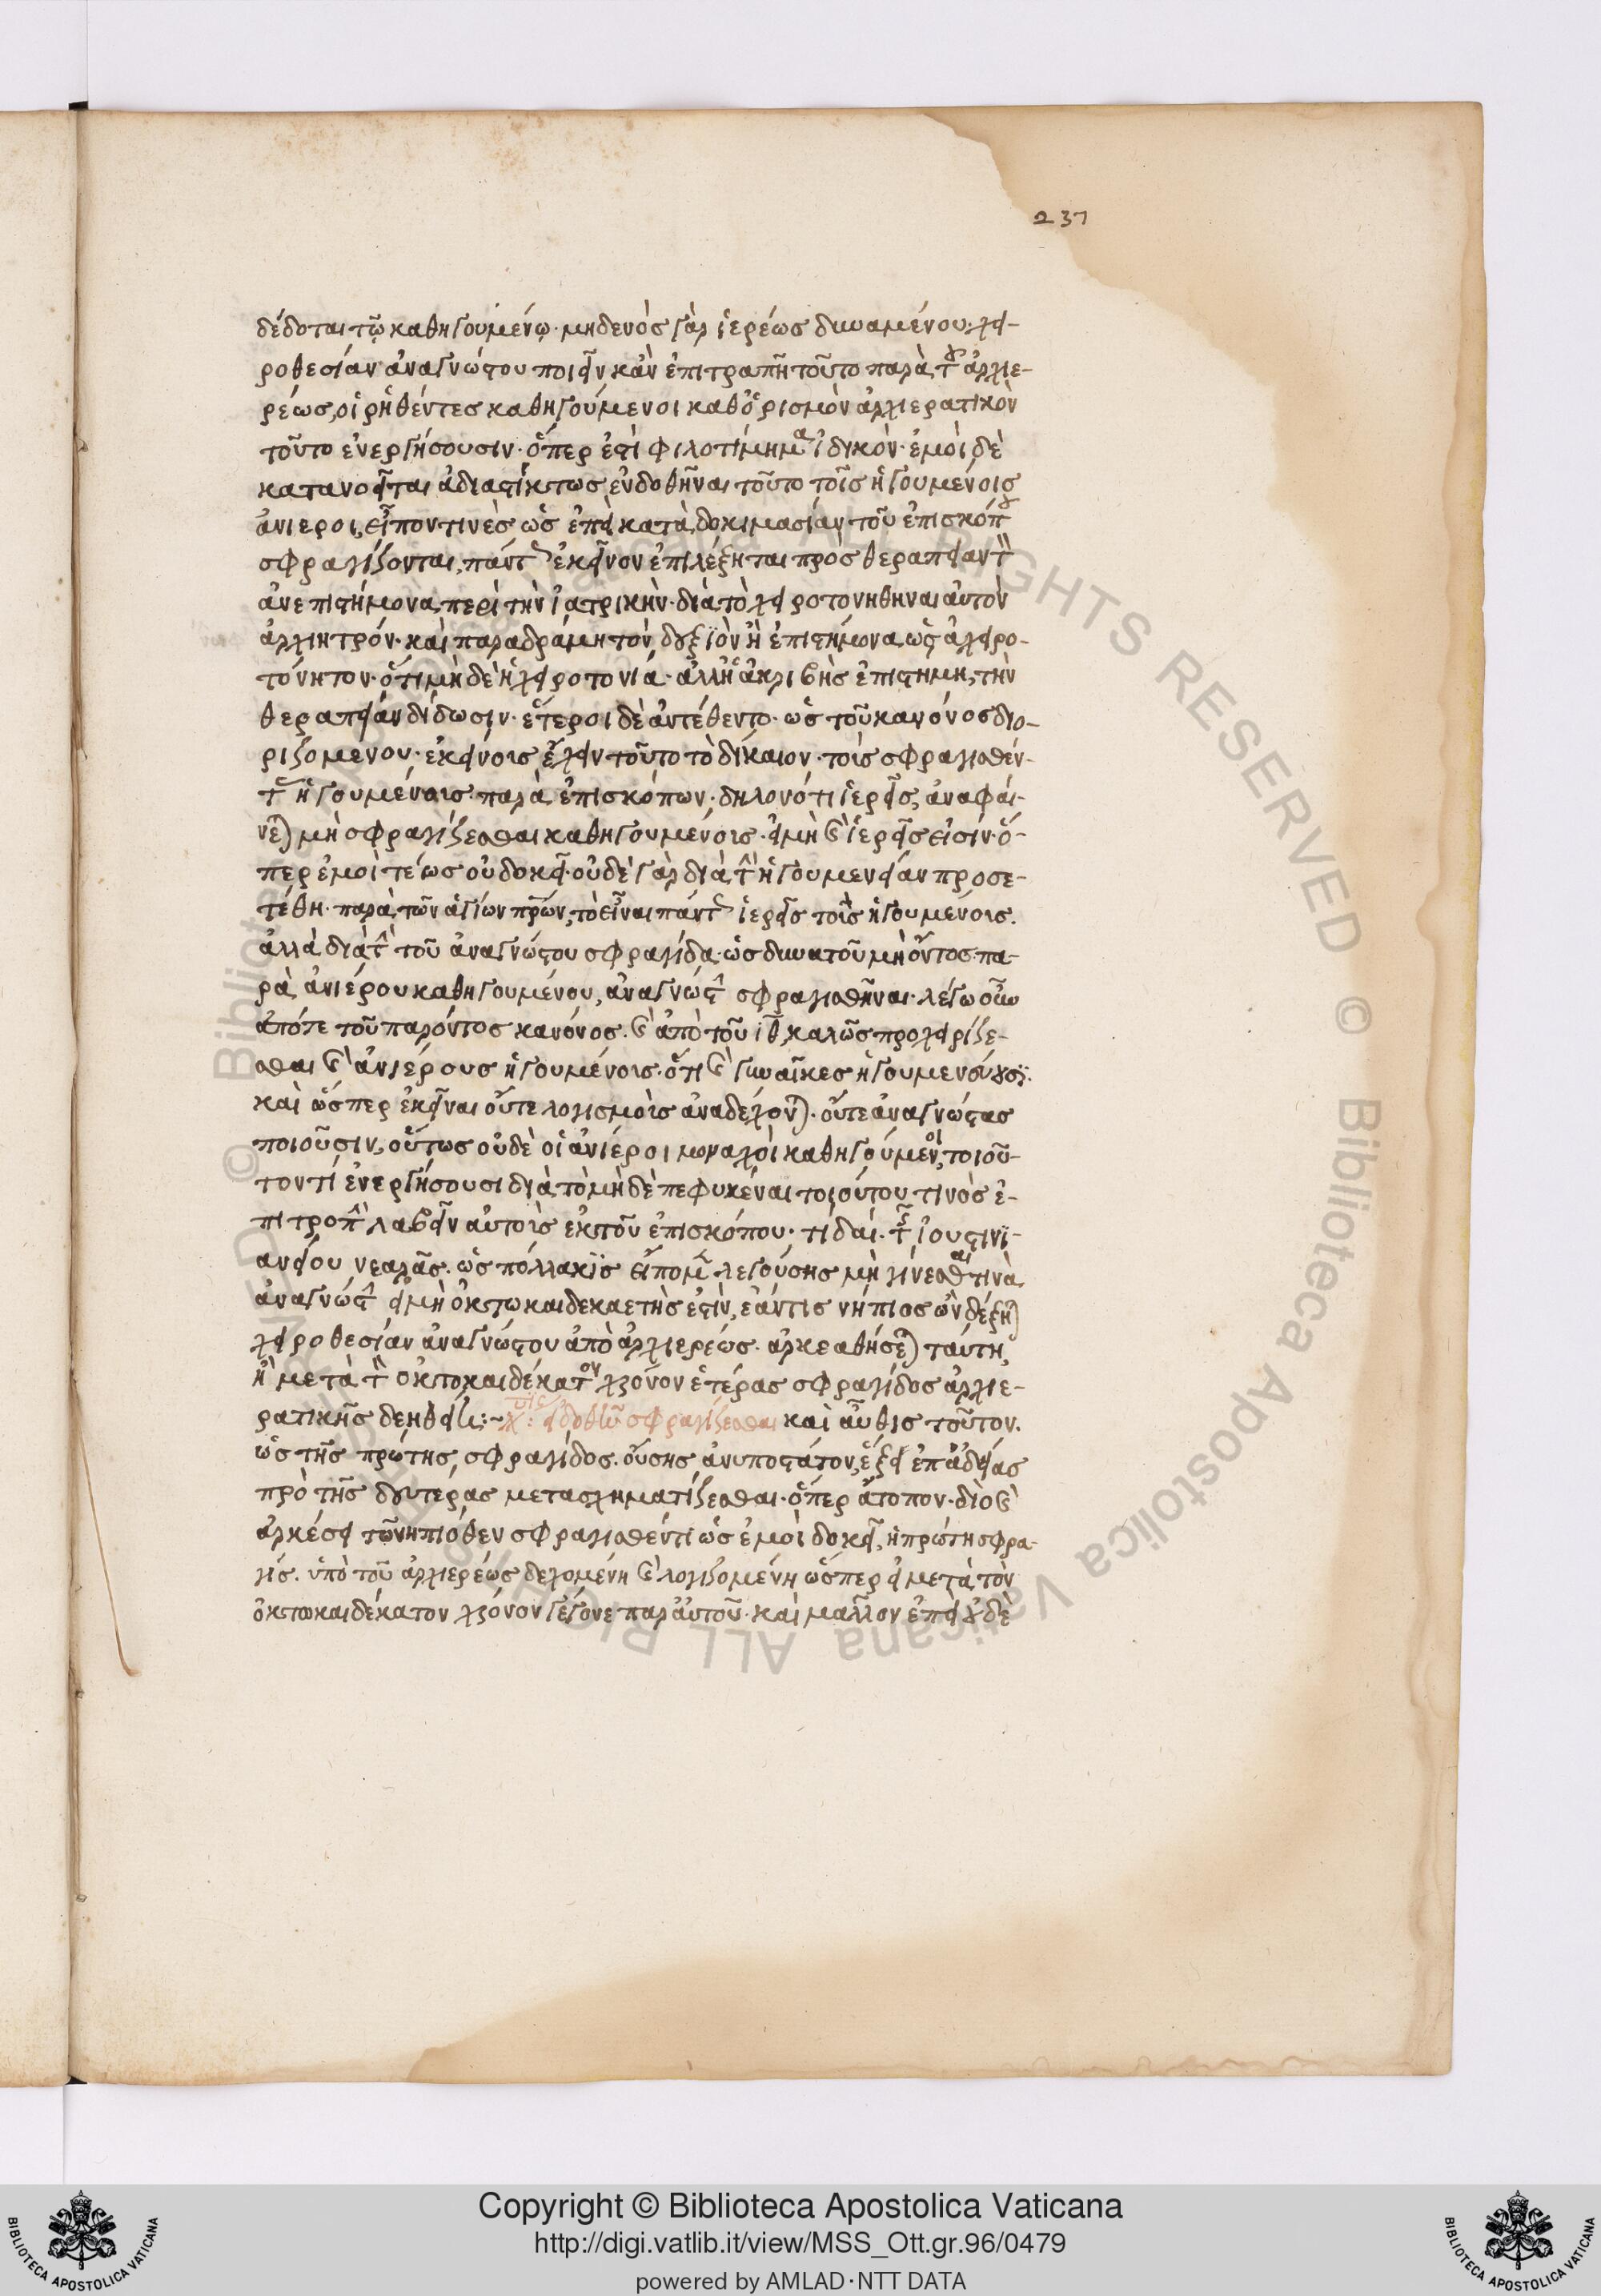 237
δέδοται τῷ καθηγουμένῳ· μηδενὸς γὰρ ἱερέως δυναμένου χει-
ροθεσίαν ἀναγνώστου ποιεῖν κἂν ἐπιτραπῆ τοῦτο παρὰ τοῦ ἀρχιε-
ρέως, οἱ ῥηθέντες καθηγούμενοι καθ' ὁρισμὸν ἀρχιερατικὸν
τοῦτο ἐνεργήσουσιν· ὅπερ ἐστὶ φιλοτίμημα ἰδικὸν· ἐμοὶ δὲ
κατανοεῖται ἀδιαστίκτως ἐνδοθῆναι τοῦτο τοῖς ἡγουμένοις
ἀνιεροι, εἶπον τινὲς ὡς ἐπεὶ κατὰ δοκιμασίαν τοῦ ἐπισκόπου
σφραγίζονται, πάντως ἐκεῖνον ἐπιλέξηται πρὸς θεραπείαν τὸν
ἀνεπιστήμονα περὶ τὴν ἰατρικὴν· διὰ τὸ χειροτονηθηναι αὐτὸν
ἀρχιητρόν· καὶ παραδράμη τὸν δεξιὸν ἢ ἐπιστήμονα ὡς ἀχειρο-
τόνητον· ὅτι μὴ δὲ ἡ χειροτονία· ἀλλ' ἡ ἀκριβὴς ἐπιστημη, τὴν
θεραπείαν δίδωσιν· ἕτεροι δὲ ἀντέθεντο· ὡς τοῦ κανόνος διο-
ριζομενου· ἐκείνοις ἔχειν τοῦτο τὸ δίκαιον· τοῖς σφραγισθέν-
τας ἡγουμένοις παρὰ ἐπισκόπων· δηλονότι ἱερεῖς, ἀναφαί-
νεται μὴ σφραγίζεσθαι καθηγουμένοις· εἰ μὴ καὶ ἱερεῖς εἰσίν· ὅ-
περ ἐμοὶ τέως οὐ δοκεῖ· οὐδὲ γὰρ διὰ τὴν ἡγουμενείαν προσε-
τέθη· παρὰ τῶν ἁγίων πρων, τὸ εἶναι πάντως ἱερεῖς τοῖς ἡγουμένοις.
ἀλλὰ διὰ τὴν τοῦ ἀναγνώστου σφραγίδα· ὡς δυνατοῦ μὴ ὄντος πα-
ρὰ ἀνιέρου καθηγουμένου, ἀναγνώστην σφραγισθῆναι· λέγω οὖν
ἀπότε τοῦ παρόντος κανόνος. καὶ ἀπὸ τοῦ ιθ καλῶς προχειρίζε-
σθαι καὶ ἀνιέρους ἡγουμένοις· ὅτι καὶ γυναῖκες ἡγουμενεύουσι.
καὶ ὥσπερ ἐκεῖναι οὔτε λογισμοὶς ἀναδέχονται· οὔτε ἀναγνώστας
ποιοῦσιν, οὕτως οὐδὲ οἱ ἀνιέροι μοναχοὶ καθηγούμενοι, τοιοῦ-
τον τί ἐνεργήσουσι διὰ τὸ μὴ δὲ πεφυκέναι τοιούτου τινὸς ἐ-
πιτροπὴν λαβεῖν αὐτοὶς ἐκ τοῦ ἐπισκόπου· τί δαί· τῆς ἰουστινι-
ανείου νεαρᾶς. ὡς πολλακις εἴπομεν λεγούσης μὴ γίνεσθαι τινὰ
ἀναγνώστην εἰ μὴ ὀκτωκαιδεκαετὴς ἐστὶν, ἐάν τις νήπιος ὢν δέξηται
χειροθεσίαν ἀναγνώστου ἀπὸ ἀρχιερέως. ἀρκεσθήσεται ταύτη,
ἢ μετὰ τὸν ὀκτοκαιδέκατον χρόνον ἑτέρας σφραγίδος ἀρχιε-
ρατικῆς δεηθείη:~ σφραγίζεσθαι καὶ αὖθις τοῦτον.
ὡς τῆς πρώτης σφραγίδος. οὔσης ἀνυποστάτον, ἕξει ἐπ' ἀδείας
πρὸ τῆς δευτέρας μετασχηματίζεσθαι· ὅπερ ἄτοπον· διὸ καὶ
ἀρκέσει τῶ νηπιόθεν σφραγισθέντι ὡς ἐμοὶ δοκεῖ, ἡ πρώτη σφρα-
γίς. ὑπὸ τοῦ ἀρχιερέως δεχομένη καὶ λογιζομένη ὥσπερ εἰ μετὰ τὸν
ὀκτωκαιδέκατον χρόνον γέγονε παρ' αὐτοῦ· καὶ μᾶλλον ἐπεὶ οὐδὲ
© Biblioteca Apostolica Vaticana ALL RIGHTS RESERVED
Copyright © Biblioteca Apostolica Vaticana
http://digi.vatlib.it/view/MSS_Ott.gr.96/0479
powered by AMLAD·NTT DATA
BIBLIOTECA APOSTOLICA VATICANA
BIBLIOTECA APOSTOLICA VATICANA